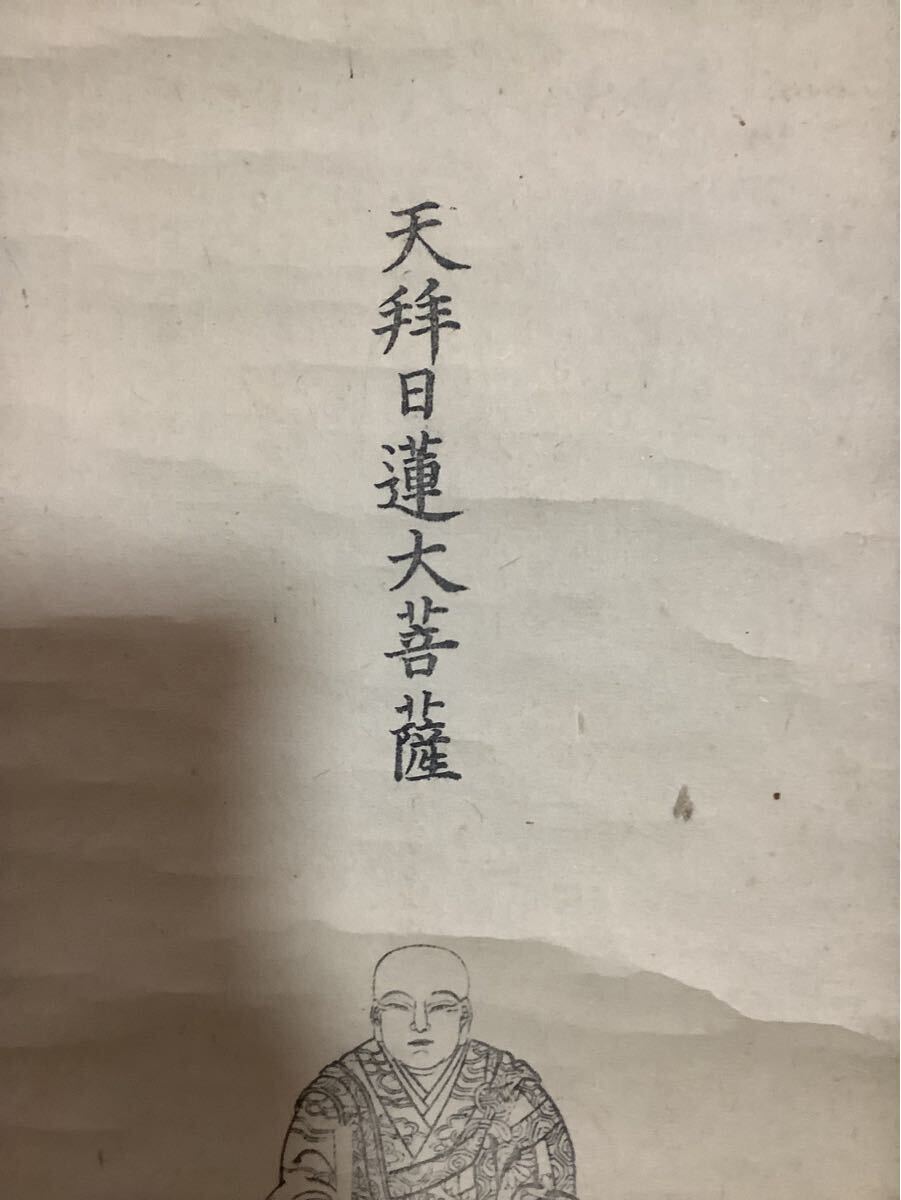 天拜日蓮大菩薩